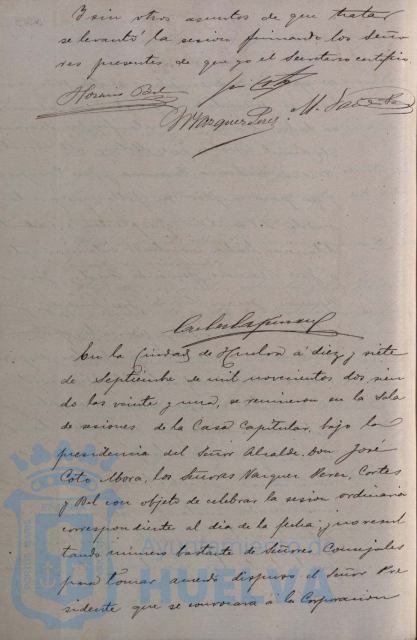 Y sin otros asuntos de que tratar
se levantó la sesion firmando los Seño-
res presentes de que yo el Secretario certifico.
J. Coto
Horacio Bel
M Vazquez Perez
M.
Carlos Espinosa
En la Ciudad de Huelva á diez y siete
de Septiembre de mil novecientos dos, sien
do las veinte y una, se reunieron en la Sala
de sesiones de la Casa Capitular, bajo la
presidencia del Señor Alcalde, Don José
Coto Mora, los Señores Vazquez Perez, Cortes
y Bel con objeto de celebrar la sesion ordinaria
correspondiente al dia de la fecha; y no resul
tando número bastante de Señores Concejales
para tomar acuerdo dispuso el Señor Pre
sidente que se convocára á la Corporacion
Ayuntamiento de
HUELVA